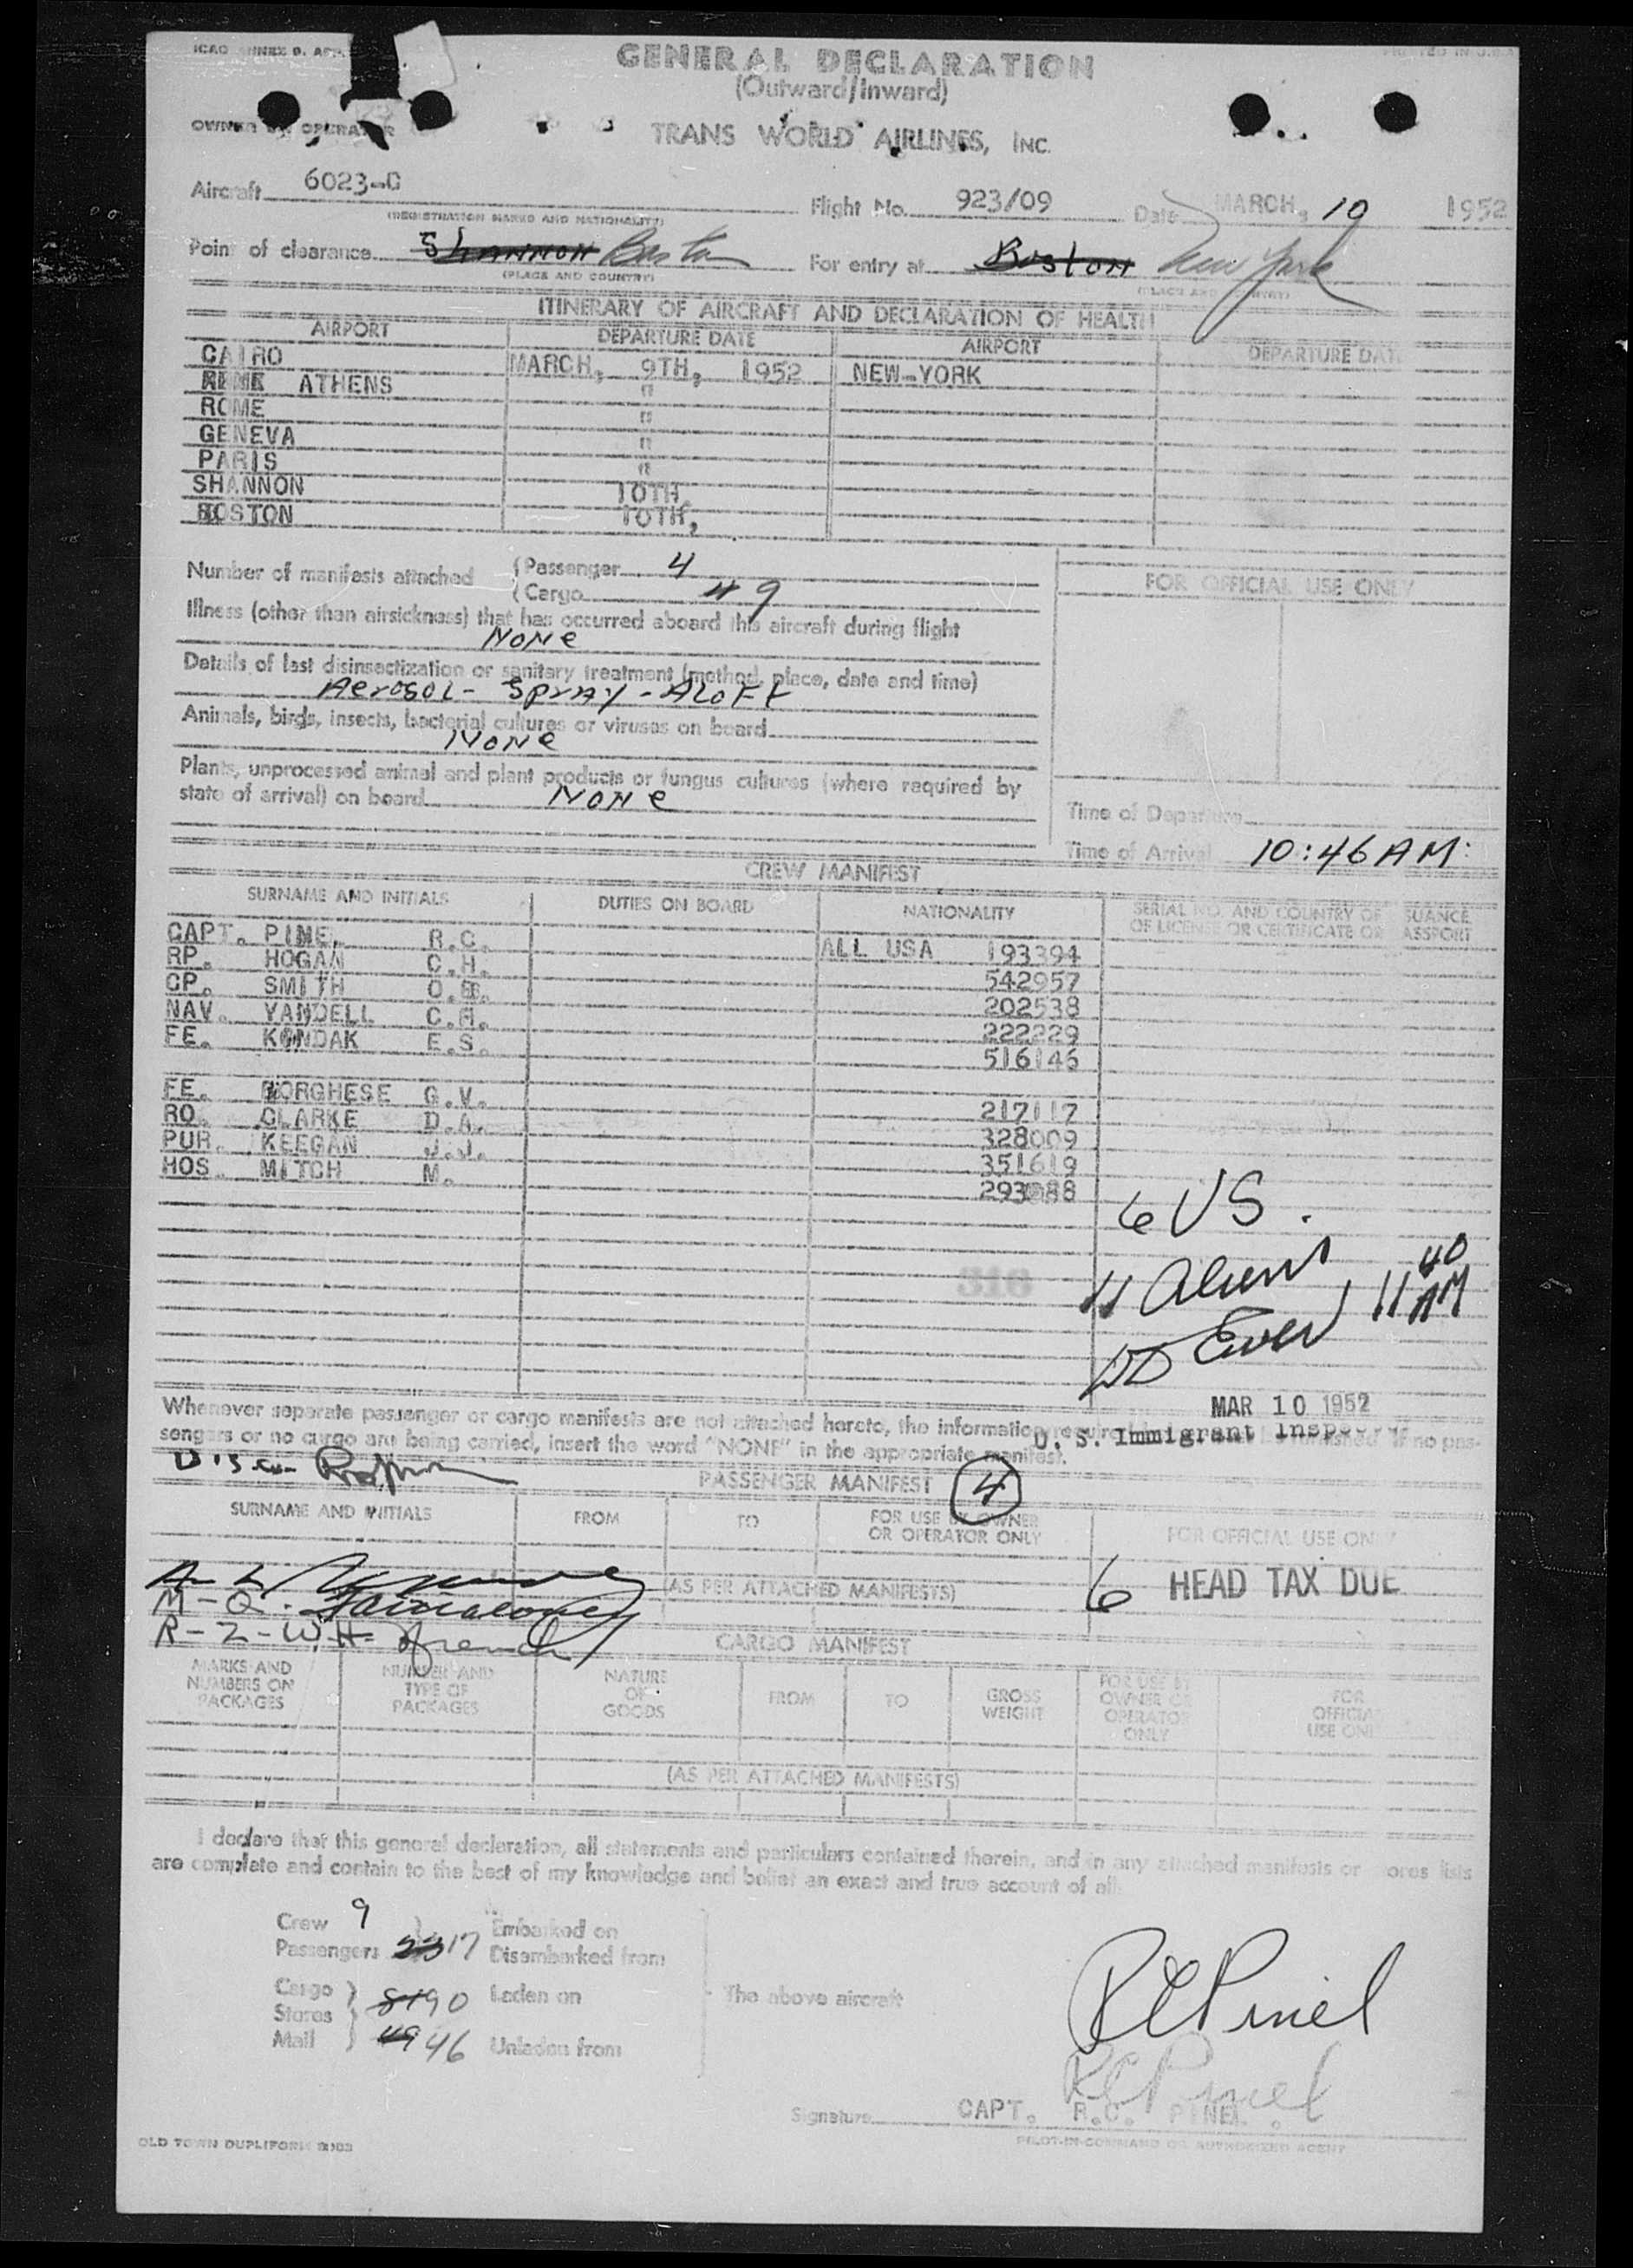 ICAO ANNEX 9, APP.
GENERAL DECLARATION
(Outward/Inward)
OWNER OR OPERATOR TRANS WORLD AIRLINES, INC.
Aircraft 6023-C Flight No. 923/09 Date MARCH, 10 1952
(REGISTRATION MARKS AND NATIONALITY)
Point of clearance SHANNON Boston For entry at Boston New York
(PLACE AND COUNTRY) (PLACE AND COUNTRY)
ITINERARY OF AIRCRAFT AND DECLARATION OF HEALTH
AIRPORT DEPARTURE DATE AIRPORT DEPARTURE DATE
CAIRO MARCH, 9TH, 1952 NEW-YORK
ATHENS "
ROME "
GENEVA "
PARIS "
SHANNON 10TH,
BOSTON 10TH,
Number of manifests attached { Passenger 4
{ Cargo 9
FOR OFFICIAL USE ONLY
Illness (other than airsickness) that has occurred aboard this aircraft during flight
NONe
Details of last disinsectization or sanitary treatment (method, place, date and time)
Aerosol - Spray - Aloft
Animals, birds, insects, bacterial cultures or viruses on board
NoNe
Plants, unprocessed animal and plant products or fungus cultures (where required by
state of arrival) on board NoNe
Time of Departure
Time of Arrival 10:46 AM
CREW MANIFEST
SURNAME AND INITIALS DUTIES ON BOARD NATIONALITY SERIAL NO. AND COUNTRY OF ISSUANCE
OF LICENSE OR CERTIFICATE OR PASSPORT
CAPT. PINEL R.C. ALL USA 193394
RP. HOGAN C.H. 542957
CP. SMITH O. 202538
NAV. YANDELL C.H. 222229
FE. KONDAK E.S. 516146
FE. BORGHESE G.V. 217117
RO. CLARKE D.A. 328009
PUR. KEEGAN J.J. 351619
HOS. MITCH M. 293088
6 US.
316
11 Aliens
11 40 AM
MAR 10 1952
U. S. Immigrant Inspector
Whenever separate passenger or cargo manifests are not attached hereto, the information required
sengers or no cargo are being carried, insert the word "NONE" in the appropriate manifest.
If no pas-
PASSENGER MANIFEST 4
SURNAME AND INITIALS FROM TO FOR USE BY OWNER
OR OPERATOR ONLY FOR OFFICIAL USE ONLY
(AS PER ATTACHED MANIFESTS) 6 HEAD TAX DUE
CARGO MANIFEST
MARKS AND
NUMBERS ON
PACKAGES NUMBER AND
TYPE OF
PACKAGES NATURE
OF
GOODS FROM TO GROSS
WEIGHT FOR USE BY
OWNER OR
OPERATOR
ONLY FOR
OFFICIAL
USE ONLY
(AS PER ATTACHED MANIFESTS)
I declare that this general declaration, all statements and particulars contained therein, and in any attached manifests or stores lists
are complete and contain to the best of my knowledge and belief an exact and true account of all.
Crew 9 Embarked on
Passengers 17 Disembarked from
Cargo } 90 Laden on The above aircraft
Stores }
Mail } 46 Unladen from
R C Pinel
R C Pinel
Signature CAPT. R.C. PINEL.
PILOT-IN-COMMAND OR AUTHORIZED AGENT
OLD TOWN DUPLIFORM